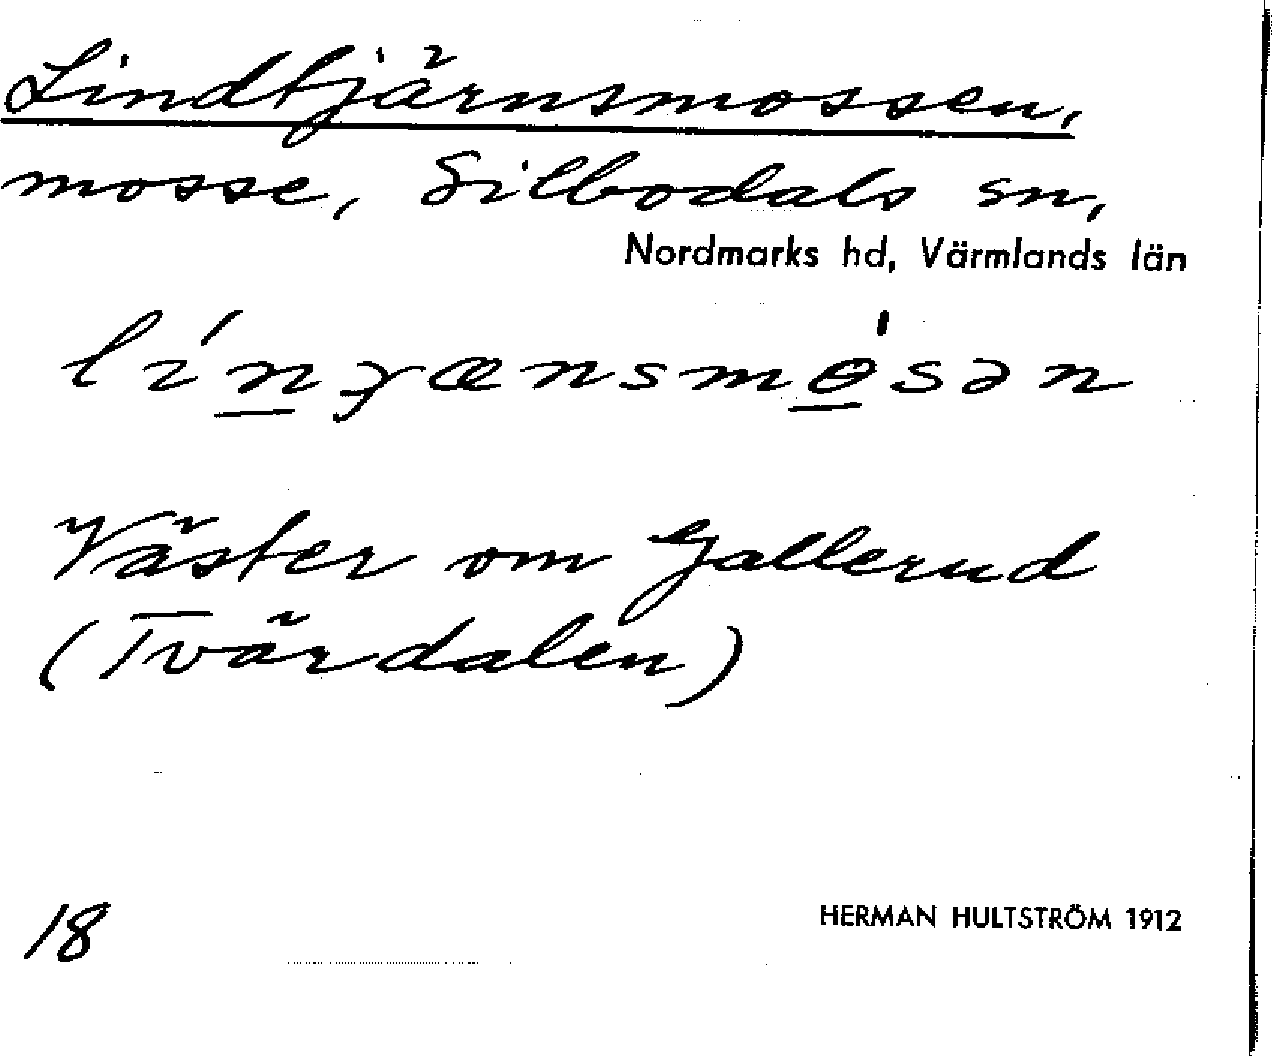 Lindtjärnsmossen,
mosse, Silbodals sn,
Nordmarks hd, Värmlands län
Väster om Gallerud
(Tvärdalen)
18
HERMAN HULTSTRÖM 1912